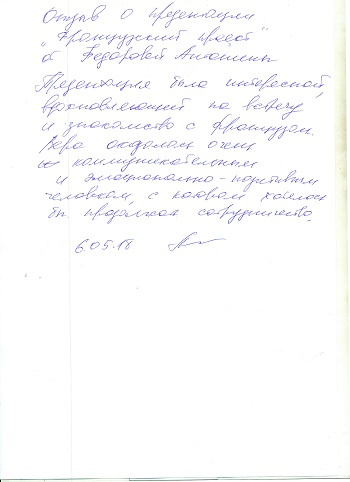 Отзыв о презентации
"Французский проект"
от Федоровой Антонины
Презентация была интересной,
вдохновляющей на встречу
и знакомство с французом.
Вера оказалась очень
коммуникательным
и эмоционально-позитивным
человеком, с которым хотелось
бы продолжать сотрудничество.
6.05.18